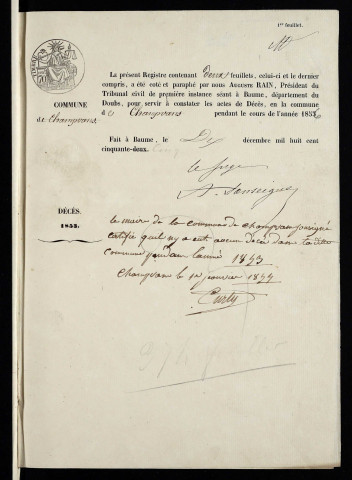 1er feuillet.
La présent Registre contenant deux feuillets, celui-ci et le dernier
compris, a été coté et paraphé par nous Auguste RAIN, Président du
Tribunal civil de première instance séant à Baume, département du
Doubs, pour servir à constater les actes de Décès, en la commune
d e Champvans pendant le cours de l'année 1853
COMMUNE
de Champvans
Fait à Baume, le Dix décembre mil huit cent
cinquante-deux.
le juge
DÉCÈS.
1853.
le maire de la commune de champvan soussigné
certifie quil ny a eut aucun décès dans la dite
commune pendan lannée 1853
Champvan le 1er janvier 1854
Curty